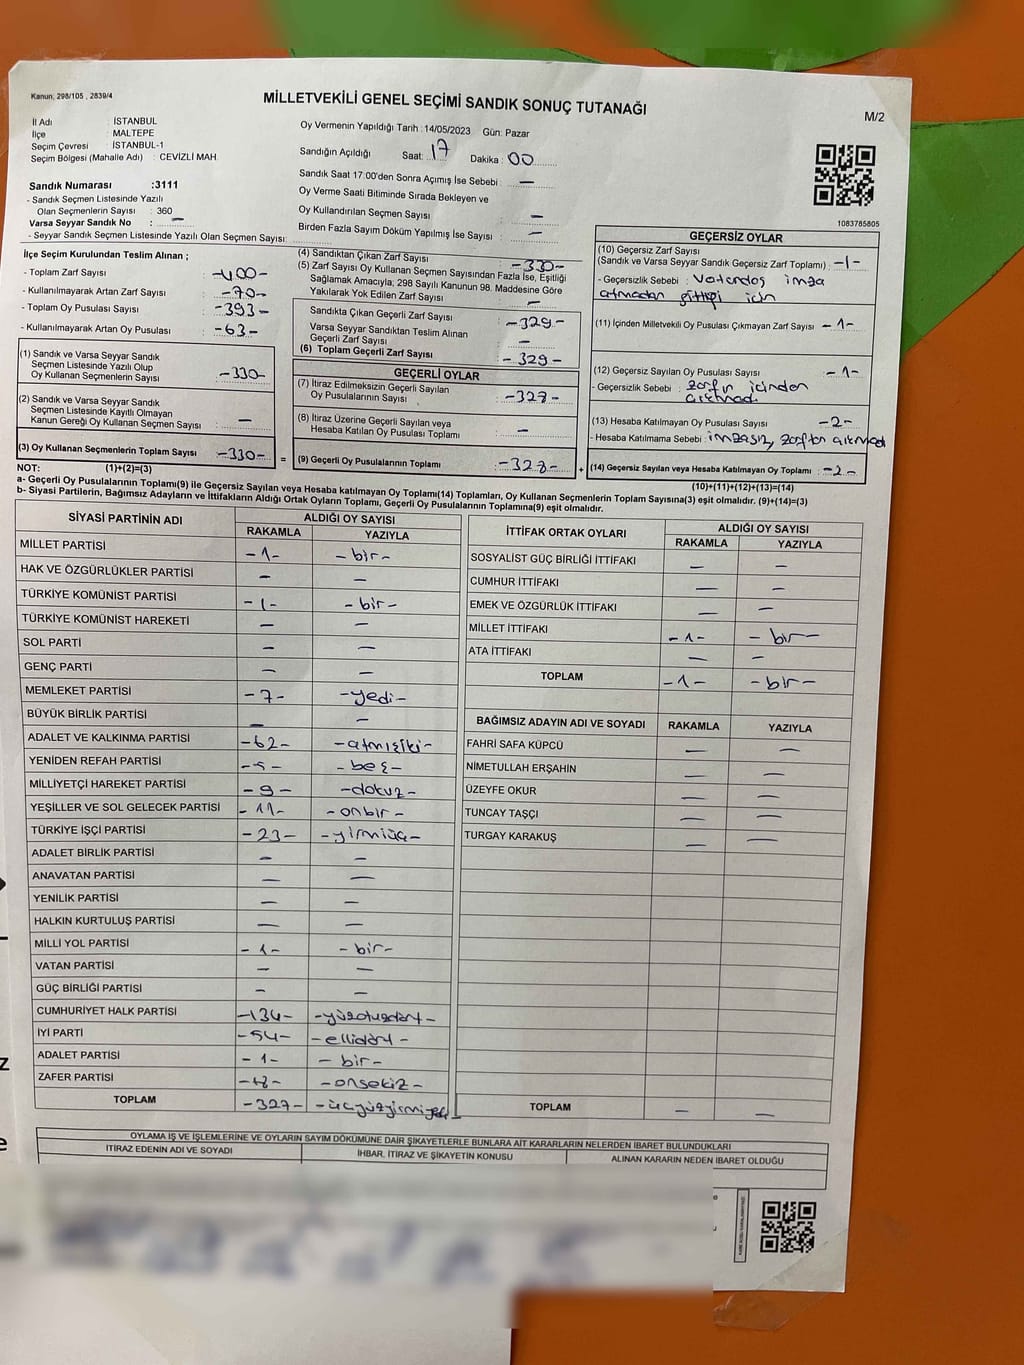 Kanun; 298/105 , 2839/4
MİLLETVEKİLİ GENEL SEÇİMİ SANDIK SONUÇ TUTANAĞI
M/2
İl Adı : İSTANBUL
İlçe : MALTEPE
Seçim Çevresi : İSTANBUL-1
Seçim Bölgesi (Mahalle Adı) : CEVİZLİ MAH.
Sandık Numarası :3111
- Sandık Seçmen Listesinde Yazılı
Olan Seçmenlerin Sayısı : 360
Varsa Seyyar Sandık No : —
- Seyyar Sandık Seçmen Listesinde Yazılı Olan Seçmen Sayısı:
Oy Vermenin Yapıldığı Tarih : 14/05/2023 Gün: Pazar
Sandığın Açıldığı Saat: 17 Dakika : 00
Sandık Saat 17:00'den Sonra Açımış İse Sebebi : —
Oy Verme Saati Bitiminde Sırada Bekleyen ve
Oy Kullandırılan Seçmen Sayısı : —
Birden Fazla Sayım Döküm Yapılmış İse Sayısı : —
1083785805
İlçe Seçim Kurulundan Teslim Alınan ;
- Toplam Zarf Sayısı : -400-
- Kullanılmayarak Artan Zarf Sayısı : -70-
- Toplam Oy Pusulası Sayısı : -393-
- Kullanılmayarak Artan Oy Pusulası : -63-
(1) Sandık ve Varsa Seyyar Sandık
Seçmen Listesinde Yazılı Olup
Oy Kullanan Seçmenlerin Sayısı : -330-
(2) Sandık ve Varsa Seyyar Sandık
Seçmen Listesinde Kayıtlı Olmayan
Kanun Gereği Oy Kullanan Seçmen Sayısı : —
(3) Oy Kullanan Seçmenlerin Toplam Sayısı : -330- =
(4) Sandıktan Çıkan Zarf Sayısı : -330-
(5) Zarf Sayısı Oy Kullanan Seçmen Sayısından Fazla İse, Eşitliği
Sağlamak Amacıyla, 298 Sayılı Kanunun 98. Maddesine Göre
Yakılarak Yok Edilen Zarf Sayısı : —
Sandıkta Çıkan Geçerli Zarf Sayısı : -329-
Varsa Seyyar Sandıktan Teslim Alınan
Geçerli Zarf Sayısı : —
(6) Toplam Geçerli Zarf Sayısı : -329-
GEÇERLİ OYLAR
(7) İtiraz Edilmeksizin Geçerli Sayılan
Oy Pusulalarının Sayısı :
(8) İtiraz Üzerine Geçerli Sayılan veya
Hesaba Katılan Oy Pusulası Toplamı : —
(9) Geçerli Oy Pusulalarının Toplamı : -328- +
GEÇERSİZ OYLAR
(10) Geçersiz Zarf Sayısı
(Sandık ve Varsa Seyyar Sandık Geçersiz Zarf Toplamı) : -1-
- Geçersizlik Sebebi : Vatandaş imza
atmadan gittiği için
(11) İçinden Milletvekili Oy Pusulası Çıkmayan Zarf Sayısı - 1-
(12) Geçersiz Sayılan Oy Pusulası Sayısı : -1-
- Geçersizlik Sebebi : zarfın içinden
çıkmadı.
(13) Hesaba Katılmayan Oy Sayısı : -2-
- Hesaba Katılmama Sebebi : imzasız, zarftan çıkmadı
(14) Geçersiz Sayılan veya Hesaba Katılmayan Oy Toplamı : -2-
NOT: (1)+(2)=(3)
(10)+(11)+(12)+(13)=(14)
a- Geçerli Oy Pusulaları Toplamı(9) ile Geçersiz Sayılan veya Hesaba Katılmayan Oy Toplamı(14) Toplamları, Oy Kullanan Seçmenlerin Toplam Sayısına(3) eşit olmalıdır. (9)+(14)=(3)
b- Siyasi Partilerin, Bağımsız Adayların ve İttifakların Aldığı Ortak Oyların Toplamı, Geçerli Oy Pusulalarının Toplamına(9) eşit olmalıdır.
SİYASİ PARTİNİN ADI ALDIĞI OY SAYISI
RAKAMLA YAZIYLA
MİLLET PARTİSİ -1- -bir-
HAK VE ÖZGÜRLÜKLER PARTİSİ — —
TÜRKİYE KOMÜNİST PARTİSİ -1- -bir-
TÜRKİYE KOMÜNİST HAREKETİ — —
SOL PARTİ — —
GENÇ PARTİ — —
MEMLEKET PARTİSİ -7- -yedi-
BÜYÜK BİRLİK PARTİSİ — —
ADALET VE KALKINMA PARTİSİ -62- -atmışiki-
YENİDEN REFAH PARTİSİ -5- -beş-
MİLLİYETÇİ HAREKET PARTİSİ -9- -dokuz-
YEŞİLLER VE SOL GELECEK PARTİSİ -11- -onbir-
TÜRKİYE İŞÇİ PARTİSİ -23- -yirmiüç-
ADALET BİRLİK PARTİSİ — —
ANAVATAN PARTİSİ — —
YENİLİK PARTİSİ — —
HALKIN KURTULUŞ PARTİSİ — —
MİLLİ YOL PARTİSİ -1- -bir-
VATAN PARTİSİ — —
GÜÇ BİRLİĞİ PARTİSİ — —
CUMHURİYET HALK PARTİSİ -134- -yüzotuzdört-
İYİ PARTİ -54- -ellidört-
ADALET PARTİSİ -1- -bir-
ZAFER PARTİSİ -18- -onsekiz-
TOPLAM -327- -üçyüzyirmiyedi-
İTTİFAK ORTAK OYLARI ALDIĞI OY SAYISI
RAKAMLA YAZIYLA
SOSYALİST GÜÇ BİRLİĞİ İTTİFAKI — —
CUMHUR İTTİFAKI — —
EMEK VE ÖZGÜRLÜK İTTİFAKI — —
MİLLET İTTİFAKI -1- -bir-
ATA İTTİFAKI — —
TOPLAM -1- -bir-
BAĞIMSIZ ADAYIN ADI VE SOYADI RAKAMLA YAZIYLA
FAHRİ SAFA KÜPCÜ — —
NİMETULLAH ERŞAHİN — —
ÜZEYFE OKUR — —
TUNCAY TAŞÇI — —
TURGAY KARAKUŞ — —
TOPLAM — —
OYLAMA İŞ VE İŞLEMLERİNE VE OYLARIN SAYIM DÖKÜMÜNE DAİR ŞİKAYETLERLE BUNLARA AİT KARARLARIN NELERDEN İBARET BULUNDUKLARI
İTİRAZ EDENİN ADI VE SOYADI İHBAR, İTİRAZ VE ŞİKAYETİN KONUSU ALINAN KARARIN NEDEN İBARET OLDUĞU